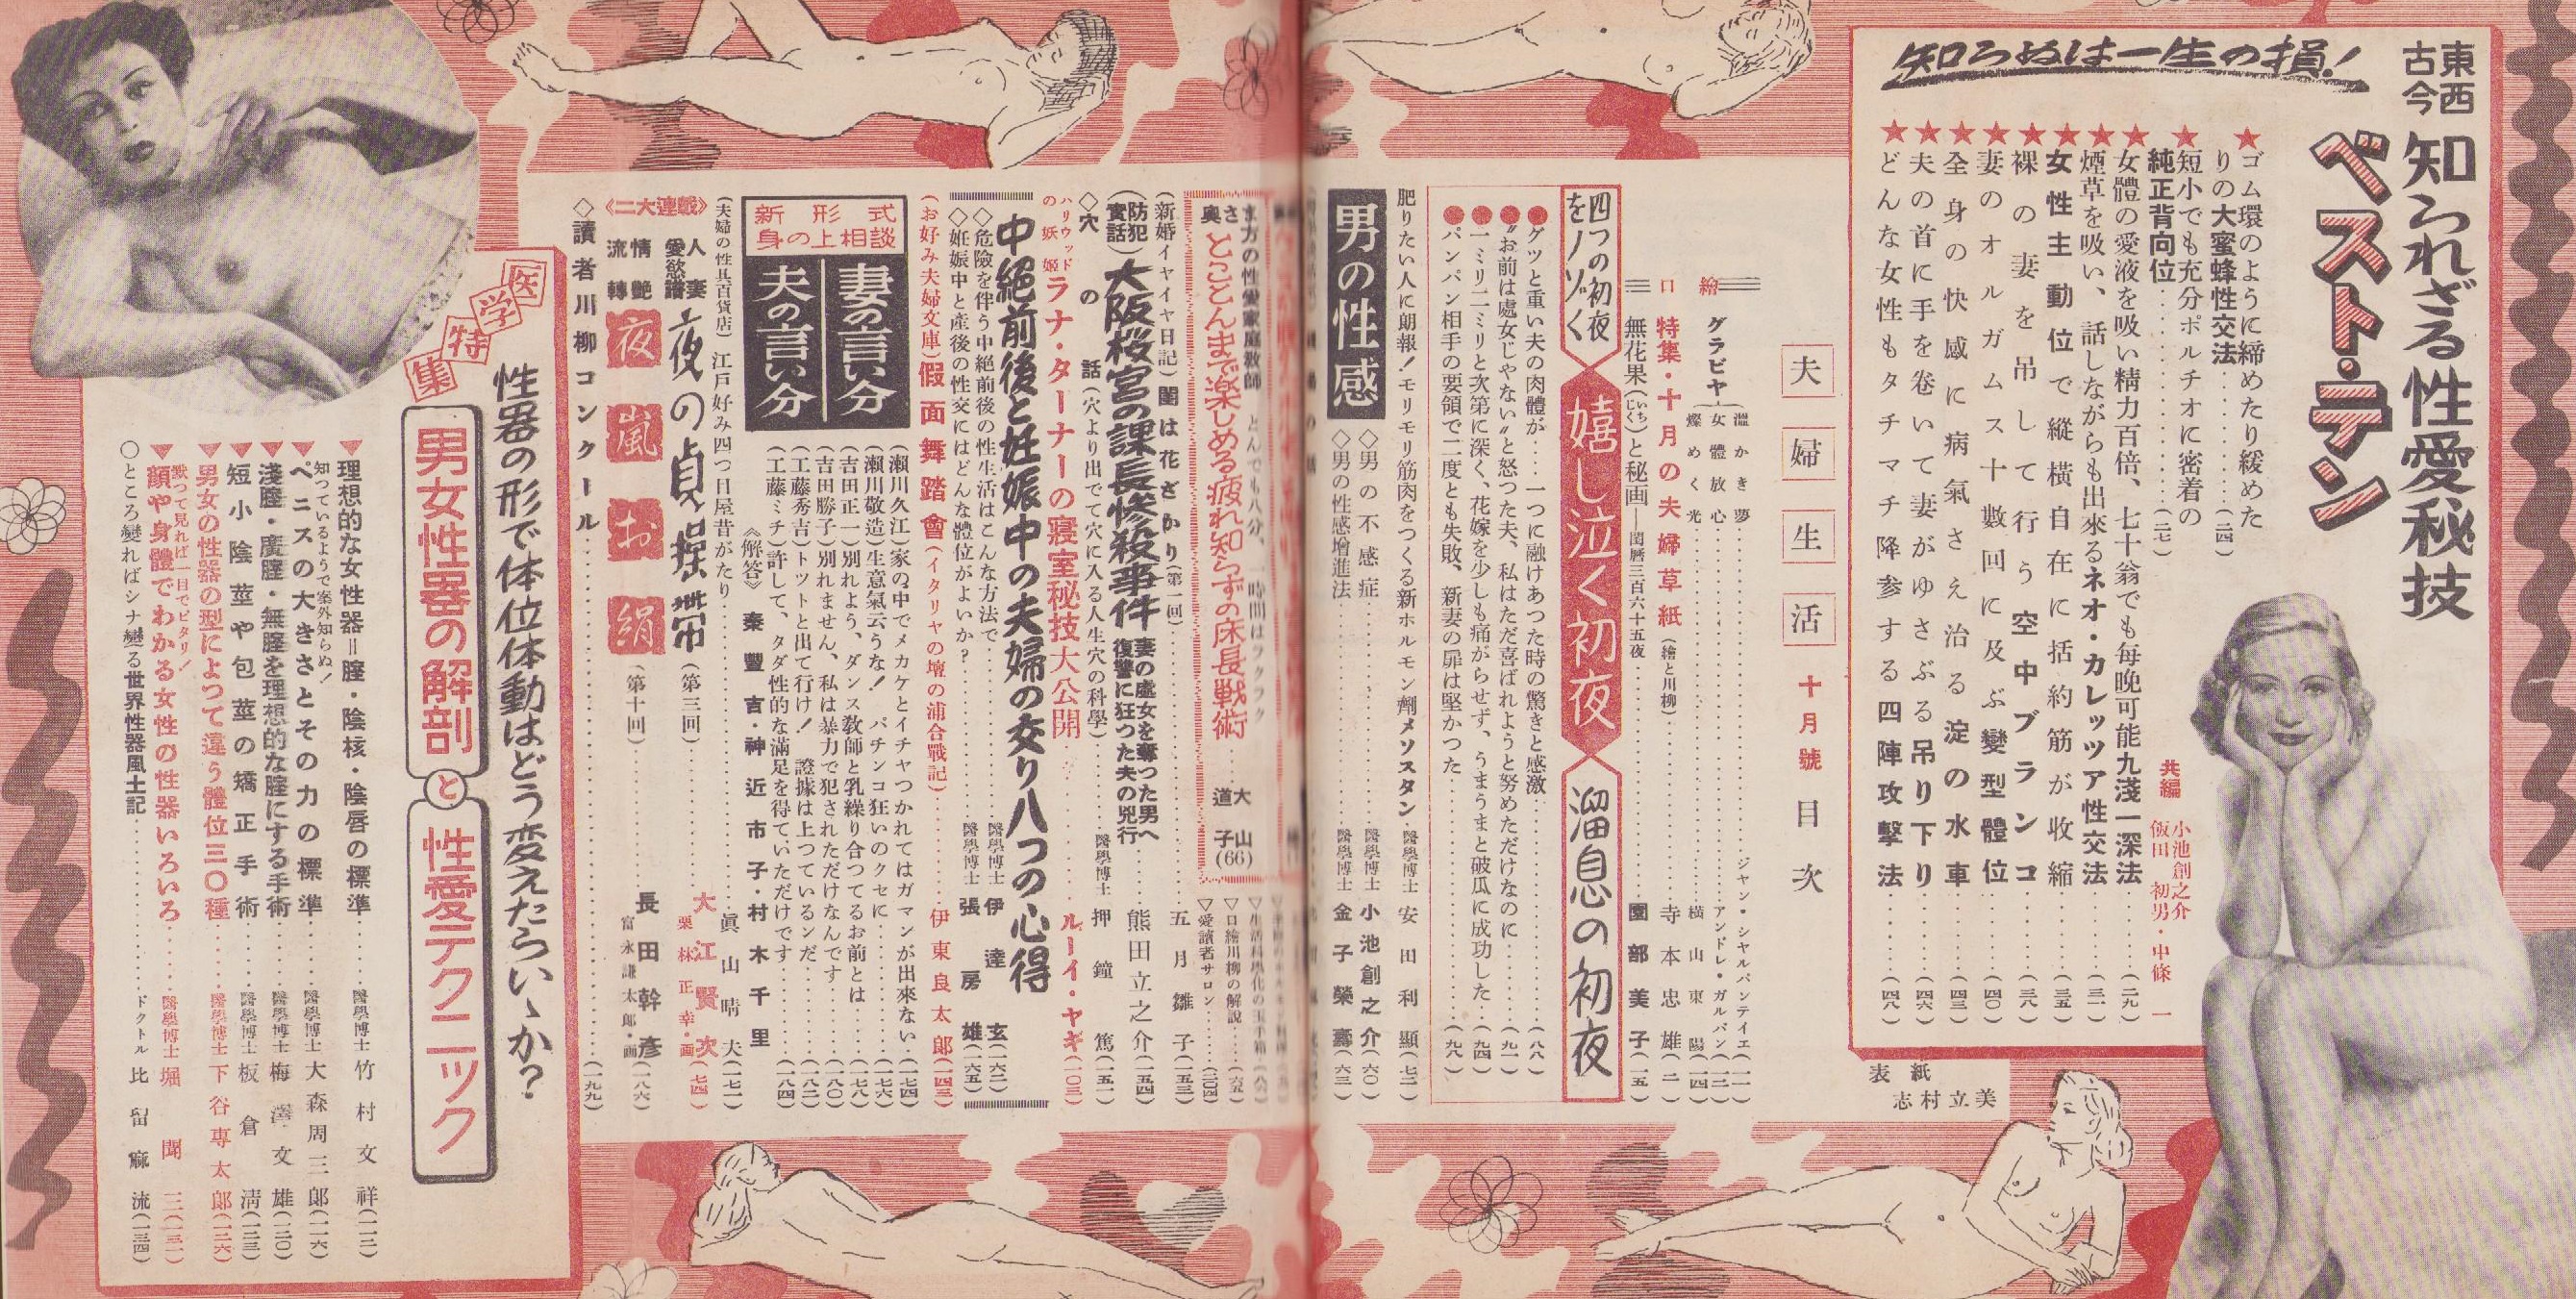 東西
古今
知られざる性愛秘技
ベスト・テン
知らぬは一生の損！
共編 小池創之介
飯田初男・中條一
★ゴム環のように締めたり緩めた
りの大蜜蜂性交法……(二四)
★短小でも充分ポルチオに密着の
純正背向位……(二七)
★女體の愛液を吸い精力百倍、七十翁でも毎晩可能九淺一深法……(二九)
★煙草を吸い、話しながらも出來るネオ・カレッツア性交法……(三一)
★女性主動位で縦横自在に括約筋が收縮……(三五)
★裸の妻を吊して行う空中ブランコ……(三八)
★妻のオルガムス十數回に及ぶ變型體位……(四〇)
★全身の快感に病氣さえ治る淀の水車……(四三)
★夫の首に手を巻いて妻がゆさぶる吊り下り……(四六)
★どんな女性もタチマチ降参する四陣攻撃法……(四八)
表紙
志村立美
夫婦生活 十月號 目次
繪
口
グラビヤ
溫かき夢……ジャン・シャルパンテイエ(一一)
女體放心……アンドレ・ガルバン(一二)
燦めく光……横山東陽(一四)
特集・十月の夫婦草紙(繪と川柳)……寺本忠雄(二一)
無花果(いちじく)と秘画―閨暦三百六十五夜……園部美子(一五)
四つの初夜
をノゾく
嬉し泣く初夜
溜息の初夜
●グツと重い夫の肉體が……一つに融けあつた時の驚きと感激……(八八)
●〝お前は處女じやない〟と怒つた夫、私はただ喜ばれようと努めただけなのに……(九一)
●一ミリ二ミリと次第に深く、花嫁を少しも痛がらせず、うまうまと破瓜に成功した……(九四)
●パンパン相手の要領で二度とも失敗、新妻の扉は堅かつた……(九八)
肥りたい人に朗報！モリモリ筋肉をつくる新ホルモン劑メソスタン……醫學博士 安田利顯(七二)
男の性感
◇男の不感症……醫學博士 小池創之介(六〇)
◇男の性感增進法……醫學博士 金子榮壽(六三)
奥さま方の性愛家庭教師
とことんまで楽しめる疲れ知らずの床長戦術……大山道子(66)
▽口繪川柳の解説……(六五)
▽愛讀者サロン……(二〇四)
(新婚イヤイヤ日記)閨は花ざかり(第一回)……五月雛子(一五三)
(防犯實話)大阪桜宮の課長惨殺事件
妻の處女を奪つた男へ
復讐に狂つた夫の兇行……熊田立之介(一五四)
◇穴の話(穴より出でて穴に入る人生穴の科學)……醫學博士 押鐘篤(一五一)
ハリウッドの妖姫 ラナ・ターナーの寝室秘技大公開……ルーイ・ヤギ(一〇三)
中絕前後と妊娠中の夫婦の交り八つの心得
◇危險を伴う中絕前後の性生活はこんな方法で……醫學博士 伊達玄(一六二)
◇妊娠中と產後の性交にはどんな體位がよいか？……醫學博士 張房雄(一六五)
(お好み夫婦文庫)假面舞踏會(イタリヤの壇の浦合戰記)……伊東良太郎(一四三)
新形式
身の上相談
妻の言い分
夫の言い分
(瀨川久江)家の中でメカケとイチヤつかれてはガマンが出來ない……(一七四)
(瀨川敬造)生意氣云うな！パチンコ狂いのクセに……(一七六)
(吉田正一)別れよう、ダンス敎師と乳繰り合つてるお前とは……(一七八)
(吉田勝子)別れません、私は暴力で犯されただけなんです……(一八〇)
(工藤秀吉)トツトと出て行け！證據は上つているンだ……(一八二)
(工藤ミチ)許して、タダ性的な滿足を得ていただけです……(一八四)
《解答》秦豐吉・神近市子・村木千里
(夫婦の性具百貨店)江戸好み四つ目屋昔がたり……眞山晴夫(一七一)
《二大連載》
人妻愛慾譜 夜の貞操帯(第三回)……大江賢次 栗林正幸・画(七四)
情艶流轉 夜嵐お絹(第十回)……長田幹彦 富永謙太郎・画(一八六)
◇讀者川柳コンクール……(一九九)
医学特集
性器の形で体位体動はどう変えたらいゝか？
男女性器の解剖
と
性愛テクニック
▼理想的な女性器＝膣・陰核・陰唇の標準……醫學博士 竹村文祥(一一二)
▼知つているようで案外知らぬ！ペニスの大きさとその力の標準……醫學博士 大森周三郎(一一六)
▼淺膣・廣膣・無膣を理想的な膣にする手術……醫學博士 梅澤文雄(一二〇)
▼短小陰莖や包莖の矯正手術……醫學博士 板倉淸(一二三)
▼男女の性器の型によつて違う體位三〇種……醫學博士 下谷專太郎(一二六)
▼默つて見れば一目でピタリ！顔や身體でわかる女性の性器いろいろ……醫學博士 堀聞三(一三一)
〇ところ變ればシナ變る世界性器風土記……ドクトル 比留麻流(一三四)